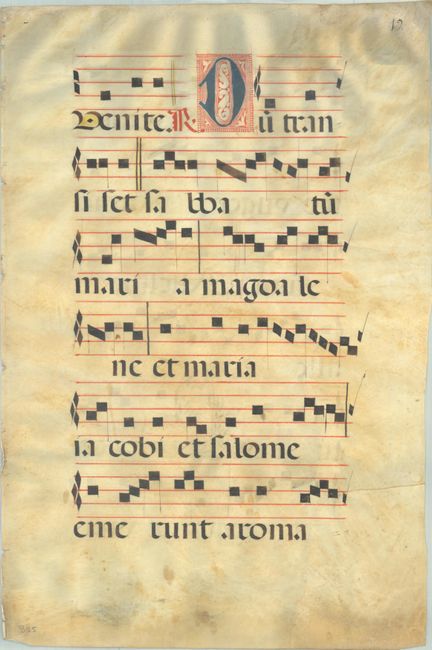 12
Venite. R. Dũ tran
si set sa bba tũ
mari a magda le
ne et maria
ia cobi et salome
eme runt aroma